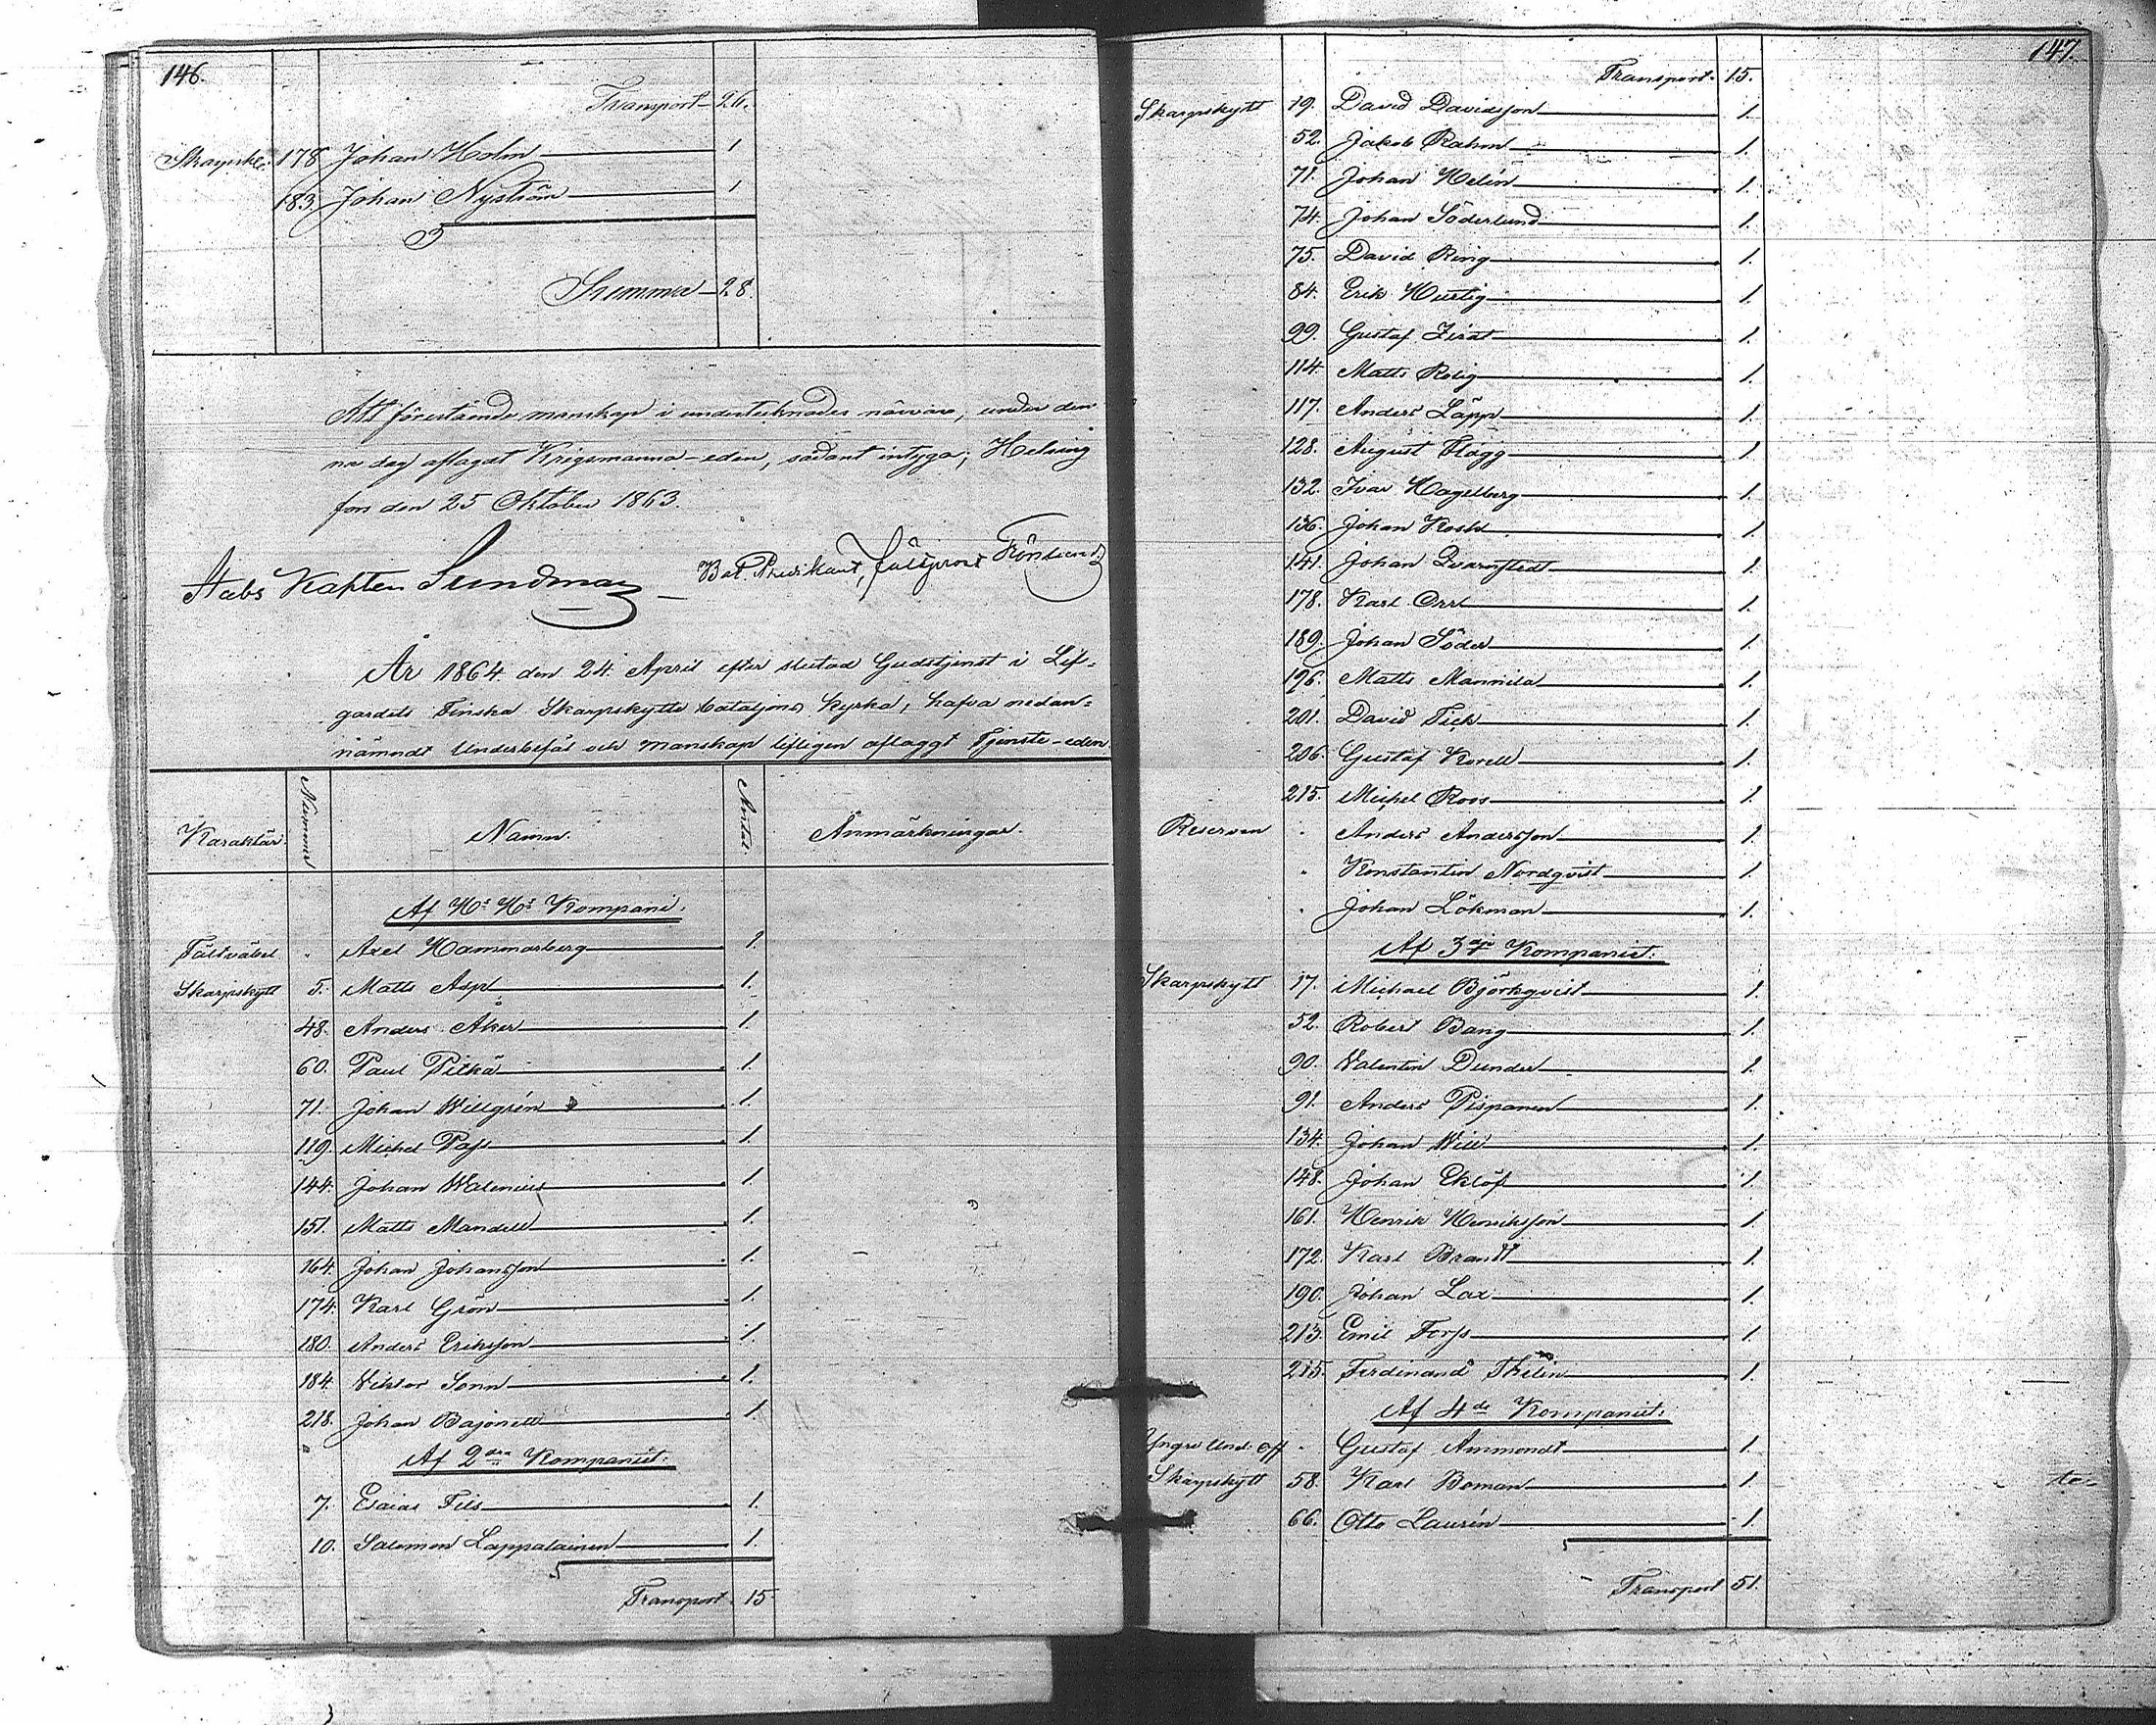 146.
Transport 26.
Skarpsk. 178 Johan Holm 1
183. Johan Nyström 1
Summa 28.
Att förestående manskap i undertecknades närvaro, under den
na dag aflagdt Krigsmanna-eden, sådant intyga; Helsing
fors den 25 Oktober 1863.
Stabs Kapten Sundman
Bat. Predikant,
År 1864 den 24. April efter slutad Gudstjenst i Lif-
gardets Finska Skarpskytte bataljons kyrka, hafva nedan-
nämndt Underbefäl och manskap lifligen aflaggt Tjenste-eden.
Karaktär. Nummer Namn. Antal. Anmärkningar.
Af Hs Hs Kompani.
Fältväbel " Axel Hammarberg 1.
Skarpskytt 5. Matts Asp 1.
48. Anders Åker 1.
60. Paul Pitkä 1.
71. Johan Willgrén 1.
119. Michel Pass 1.
144. Johan Walenius 1.
151. Matts Mandell 1.
164. Johan Johansson 1.
174. Karl Grön 1.
180. Anders Eriksson 1.
184. Viktor Sonn 1.
218. Johan Bajonett 1.
Af 2dra Kompaniet.
7. Esaias Fils 1.
10. Salomon Lappalainen 1.
Transport 15
147.
Transport. 15.
Skarpskytt 19. David Davidsson 1.
52. Jakob Rahm 1.
71. Johan Helin 1.
74. Johan Söderlund 1.
75. David Ring 1.
84. Erik Hurtig 1.
99. Gustaf Zirat 1.
114. Matts Rolig 1.
117. Anders Läpp 1.
128. August Flagg 1.
132. Ivar Hagelberg 1.
136. Johan Kosk 1.
141. Johan Qvarnstedt 1.
178. Karl Orrl 1.
189. Johan Söder 1.
196. Matts Mannila 1.
201. David Fick 1.
206. Gustaf Korell 1.
215. Michel Roos 1.
Reserven " Anders Andersson 1.
" Konstantin Nordqvist 1.
" Johan Lökman 1.
Af 3dje Kompaniet.
Skarpskytt 17. Michael Björkqvist 1.
52. Robert Bang 1.
90. Valentin Dunder 1.
91. Anders Pispanen 1.
134. Johan Will 1.
148. Johan Eklöf 1.
161. Henrik Henriksson 1.
172. Karl Brandt 1.
190. Johan Lax 1.
213. Emil Forss 1.
215. Ferdinand Thilén 1.
Af 4de Kompaniet.
Yngre Und: Off " Gustaf Ammondt 1.
Skarpskytt 58. Karl Boman 1.
66. Otto Laurén 1.
Transport 51.